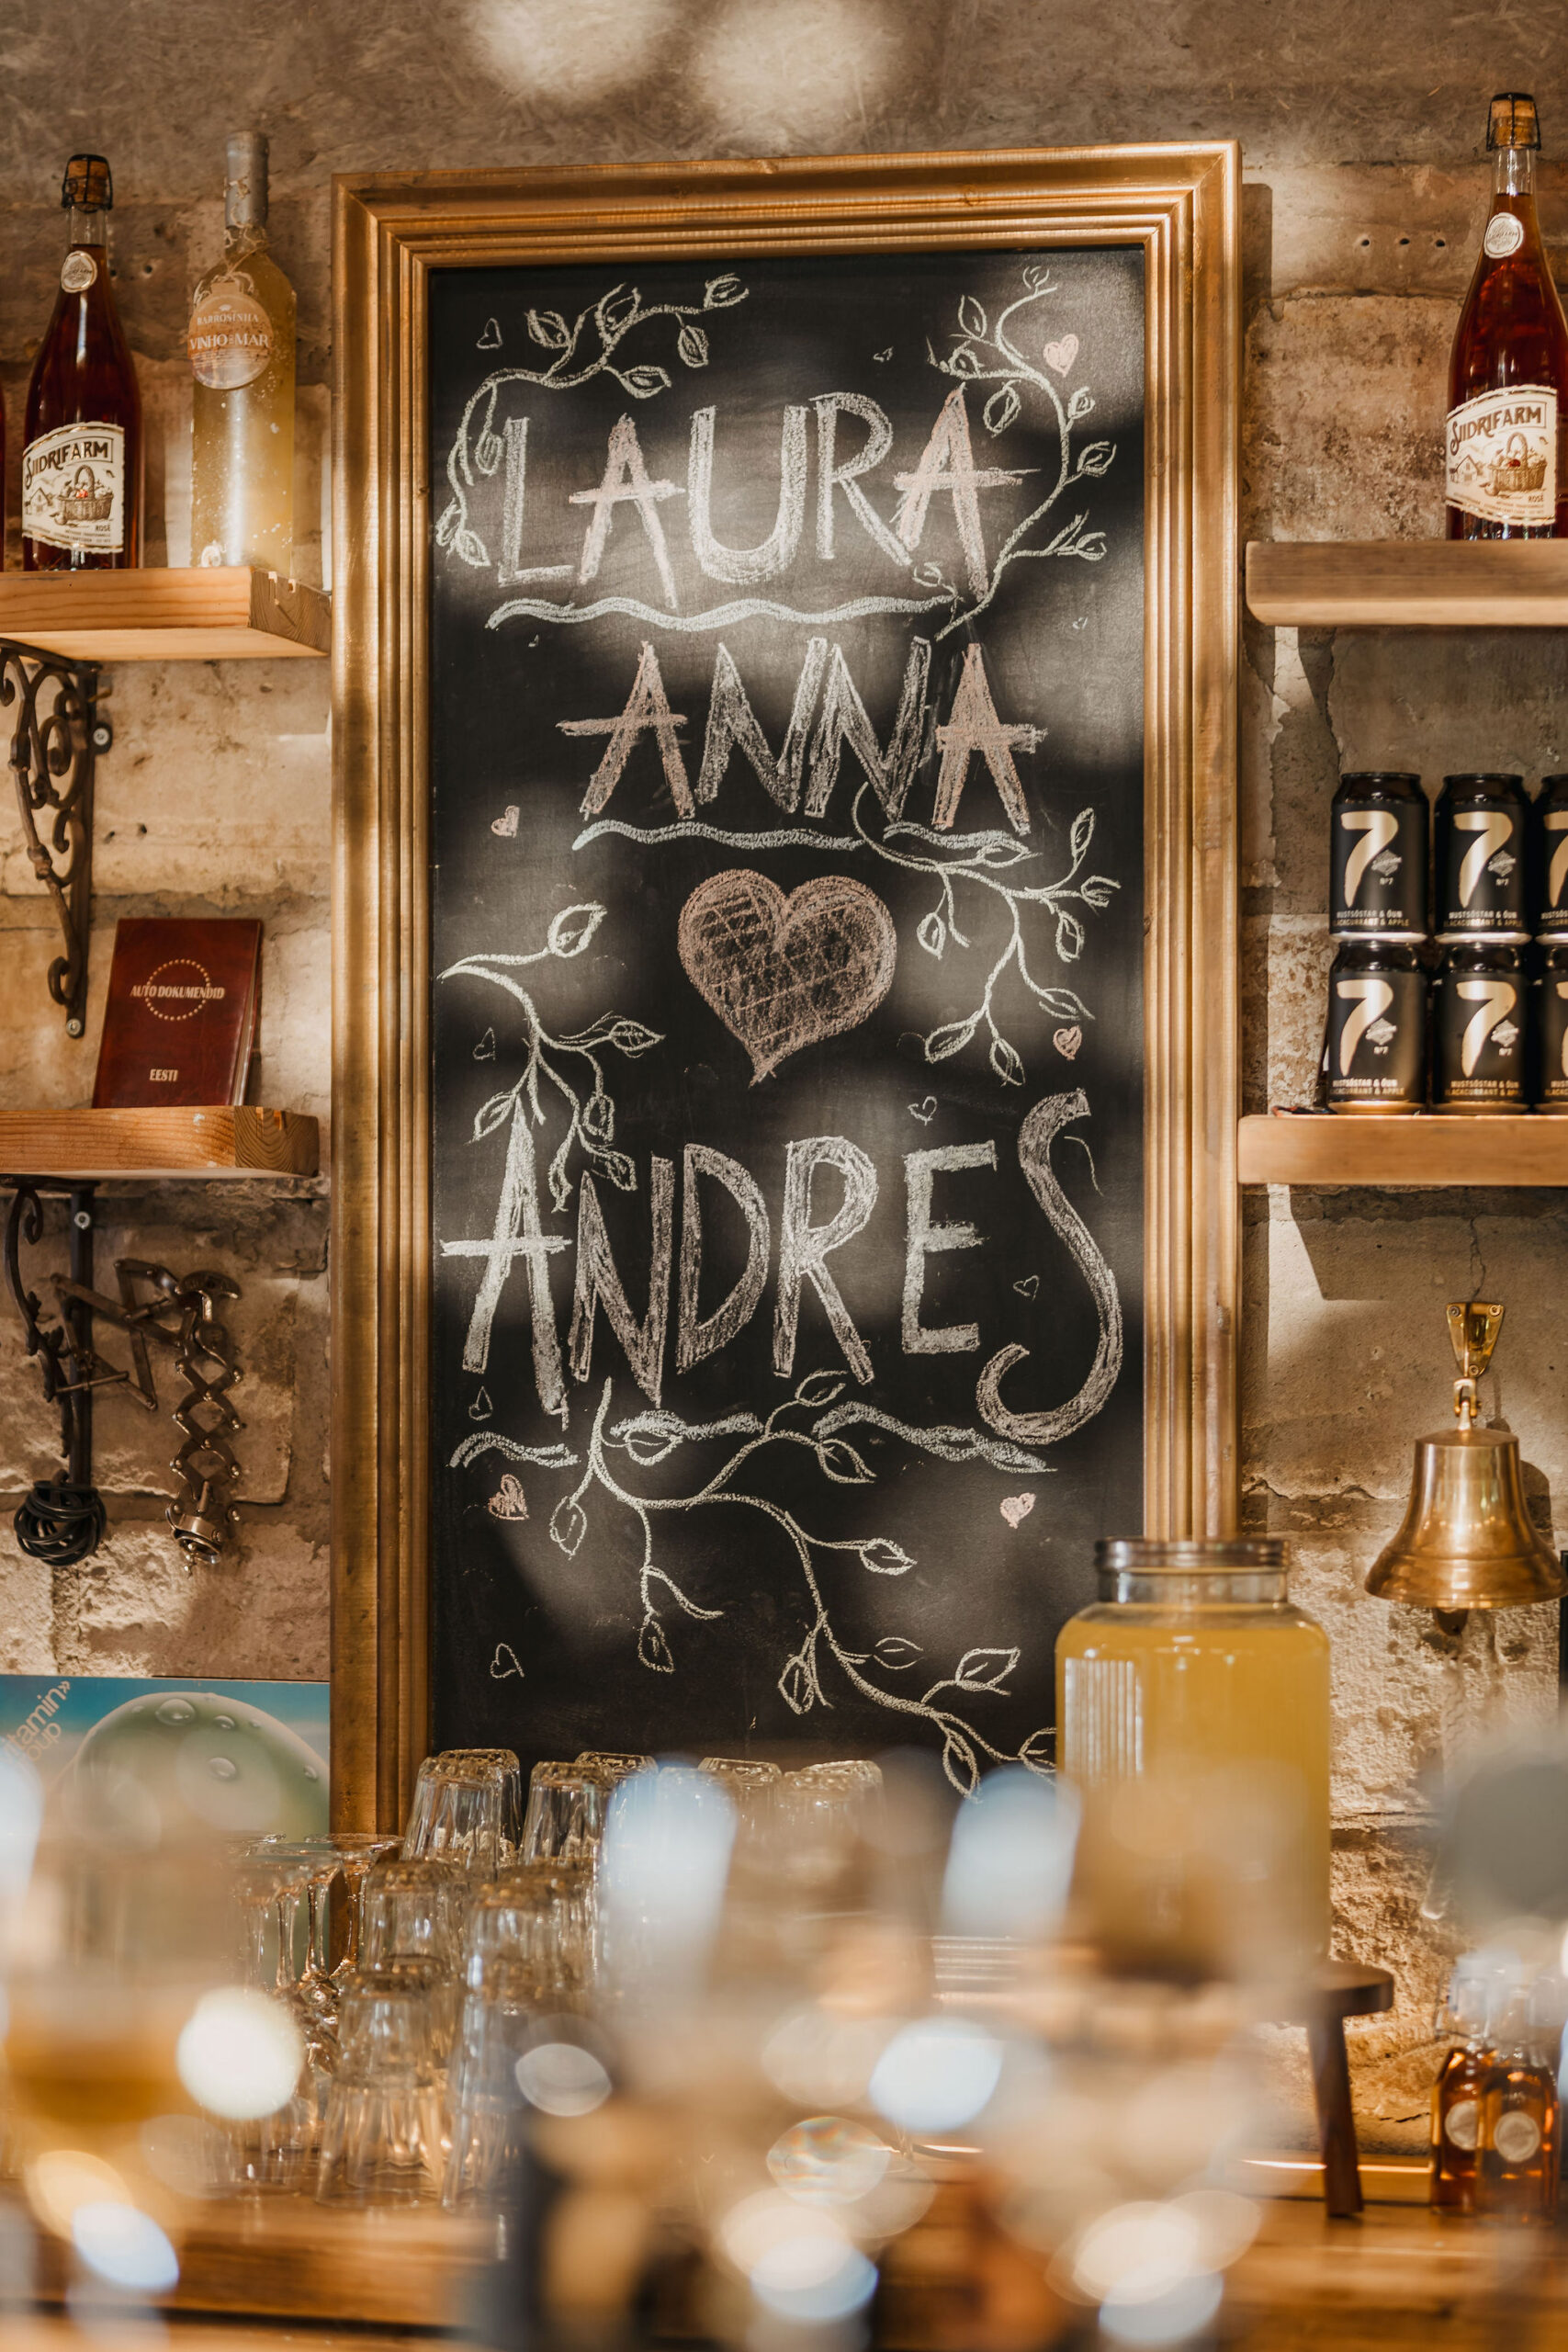 LAURA
ANNA
ANDRES
BARROSINHA
VINHO DO MAR
SIIDRIFARM
ROSÉ
SIIDRIFARM
ROSÉ
AUTO DOKUMENDID
EESTI
7
Nº7
MUSTSÕSTAR & ÕUN
BLACKCURRANT & APPLE
7
Nº7
MUSTSÕSTAR & ÕUN
BLACKCURRANT & APPLE
7
Nº7
MUSTSÕSTAR & ÕUN
BLACKCURRANT & APPLE
7
Nº7
MUSTSÕSTAR & ÕUN
BLACKCURRANT & APPLE